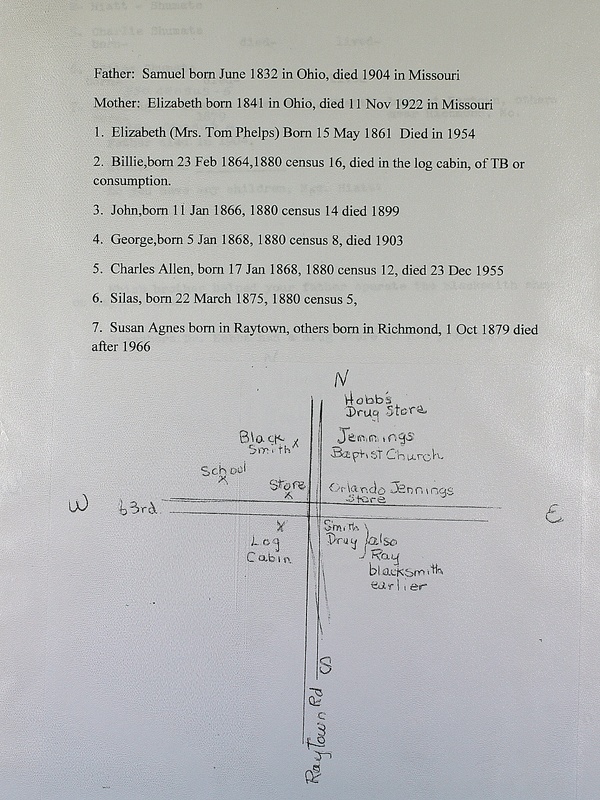 Father: Samuel born June 1832 in Ohio, died 1904 in Missouri
Mother: Elizabeth born 1841 in Ohio, died 11 Nov 1922 in Missouri
1. Elizabeth (Mrs. Tom Phelps) Born 15 May 1861 Died in 1954
2. Billie,born 23 Feb 1864,1880 census 16, died in the log cabin, of TB or
consumption.
3. John,born 11 Jan 1866, 1880 census 14 died 1899
4. George,born 5 Jan 1868, 1880 census 8, died 1903
5. Charles Allen, born 17 Jan 1868, 1880 census 12, died 23 Dec 1955
6. Silas, born 22 March 1875, 1880 census 5,
7. Susan Agnes born in Raytown, others born in Richmond, 1 Oct 1879 died
after 1966
N
Hobb's
Drug Store
Black
Smith
Jennings
Baptist Church
School
Store
Orlando Jennings
Store
W
63rd.
E
Log
Cabin
Smith
Drug
also
Ray
blacksmith
earlier
S
Raytown Rd